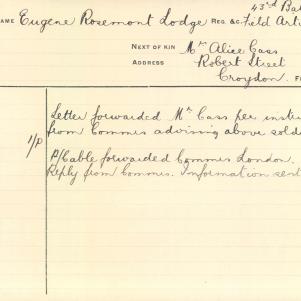 43rd Bat
NAME Eugene Rosemont Lodge REG. &c. Field Arti
NEXT OF KIN Mrs Alice Cass
ADDRESS Robert Street
Croydon.
Letter forwarded Mrs Cass per instru
from Commis advising above sold
1/P
P/Cable forwarded Commis London.
Reply from Commis. Information sent